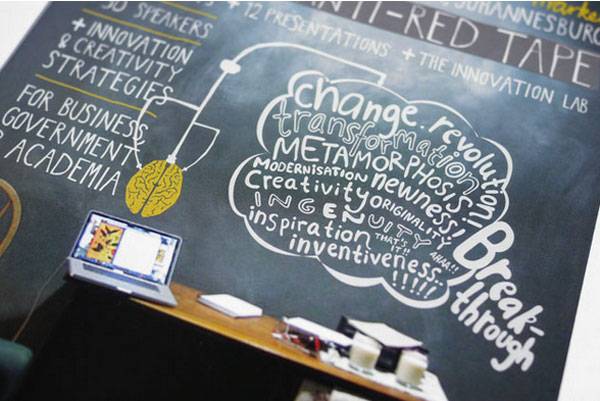 SPEAKERS
+ 12 PRESENTATIONS
ANTI-RED TAPE
JOHANNESBURG
+ INNOVATION
& CREATIVITY
STRATEGIES
+ THE INNOVATION LAB
FOR BUSINESS,
GOVERNMENT
ACADEMIA
Change. revolution
transformation
METAMORPHOSIS!
MODERNISATION newness!
Creativity ORIGINALITY
INGENUITY AHAA!!
inspiration THAT'S IT!!
inventiveness..
!!!!!
Break-
through